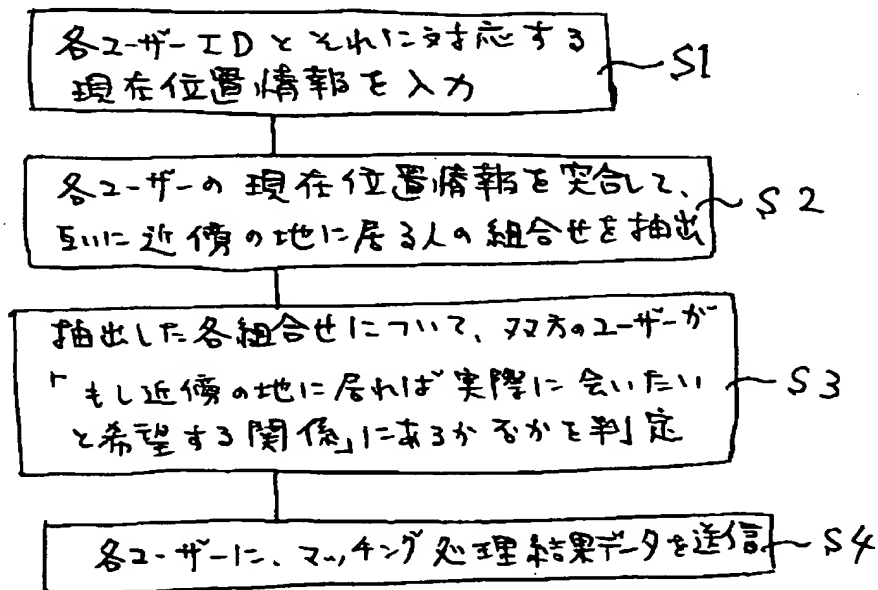 各ユーザーIDとそれに対応する S1
現在位置情報を入力
各ユーザーの現在位置情報を突合して、 S2
互いに近傍の地に居る人の組合せを抽出
抽出した各組合せについて、双方のユーザーが
「もし近傍の地に居れば実際に会いたい S3
と希望する関係」にあるか否かを判定
各ユーザーに、マッチング処理結果データを送信 S4